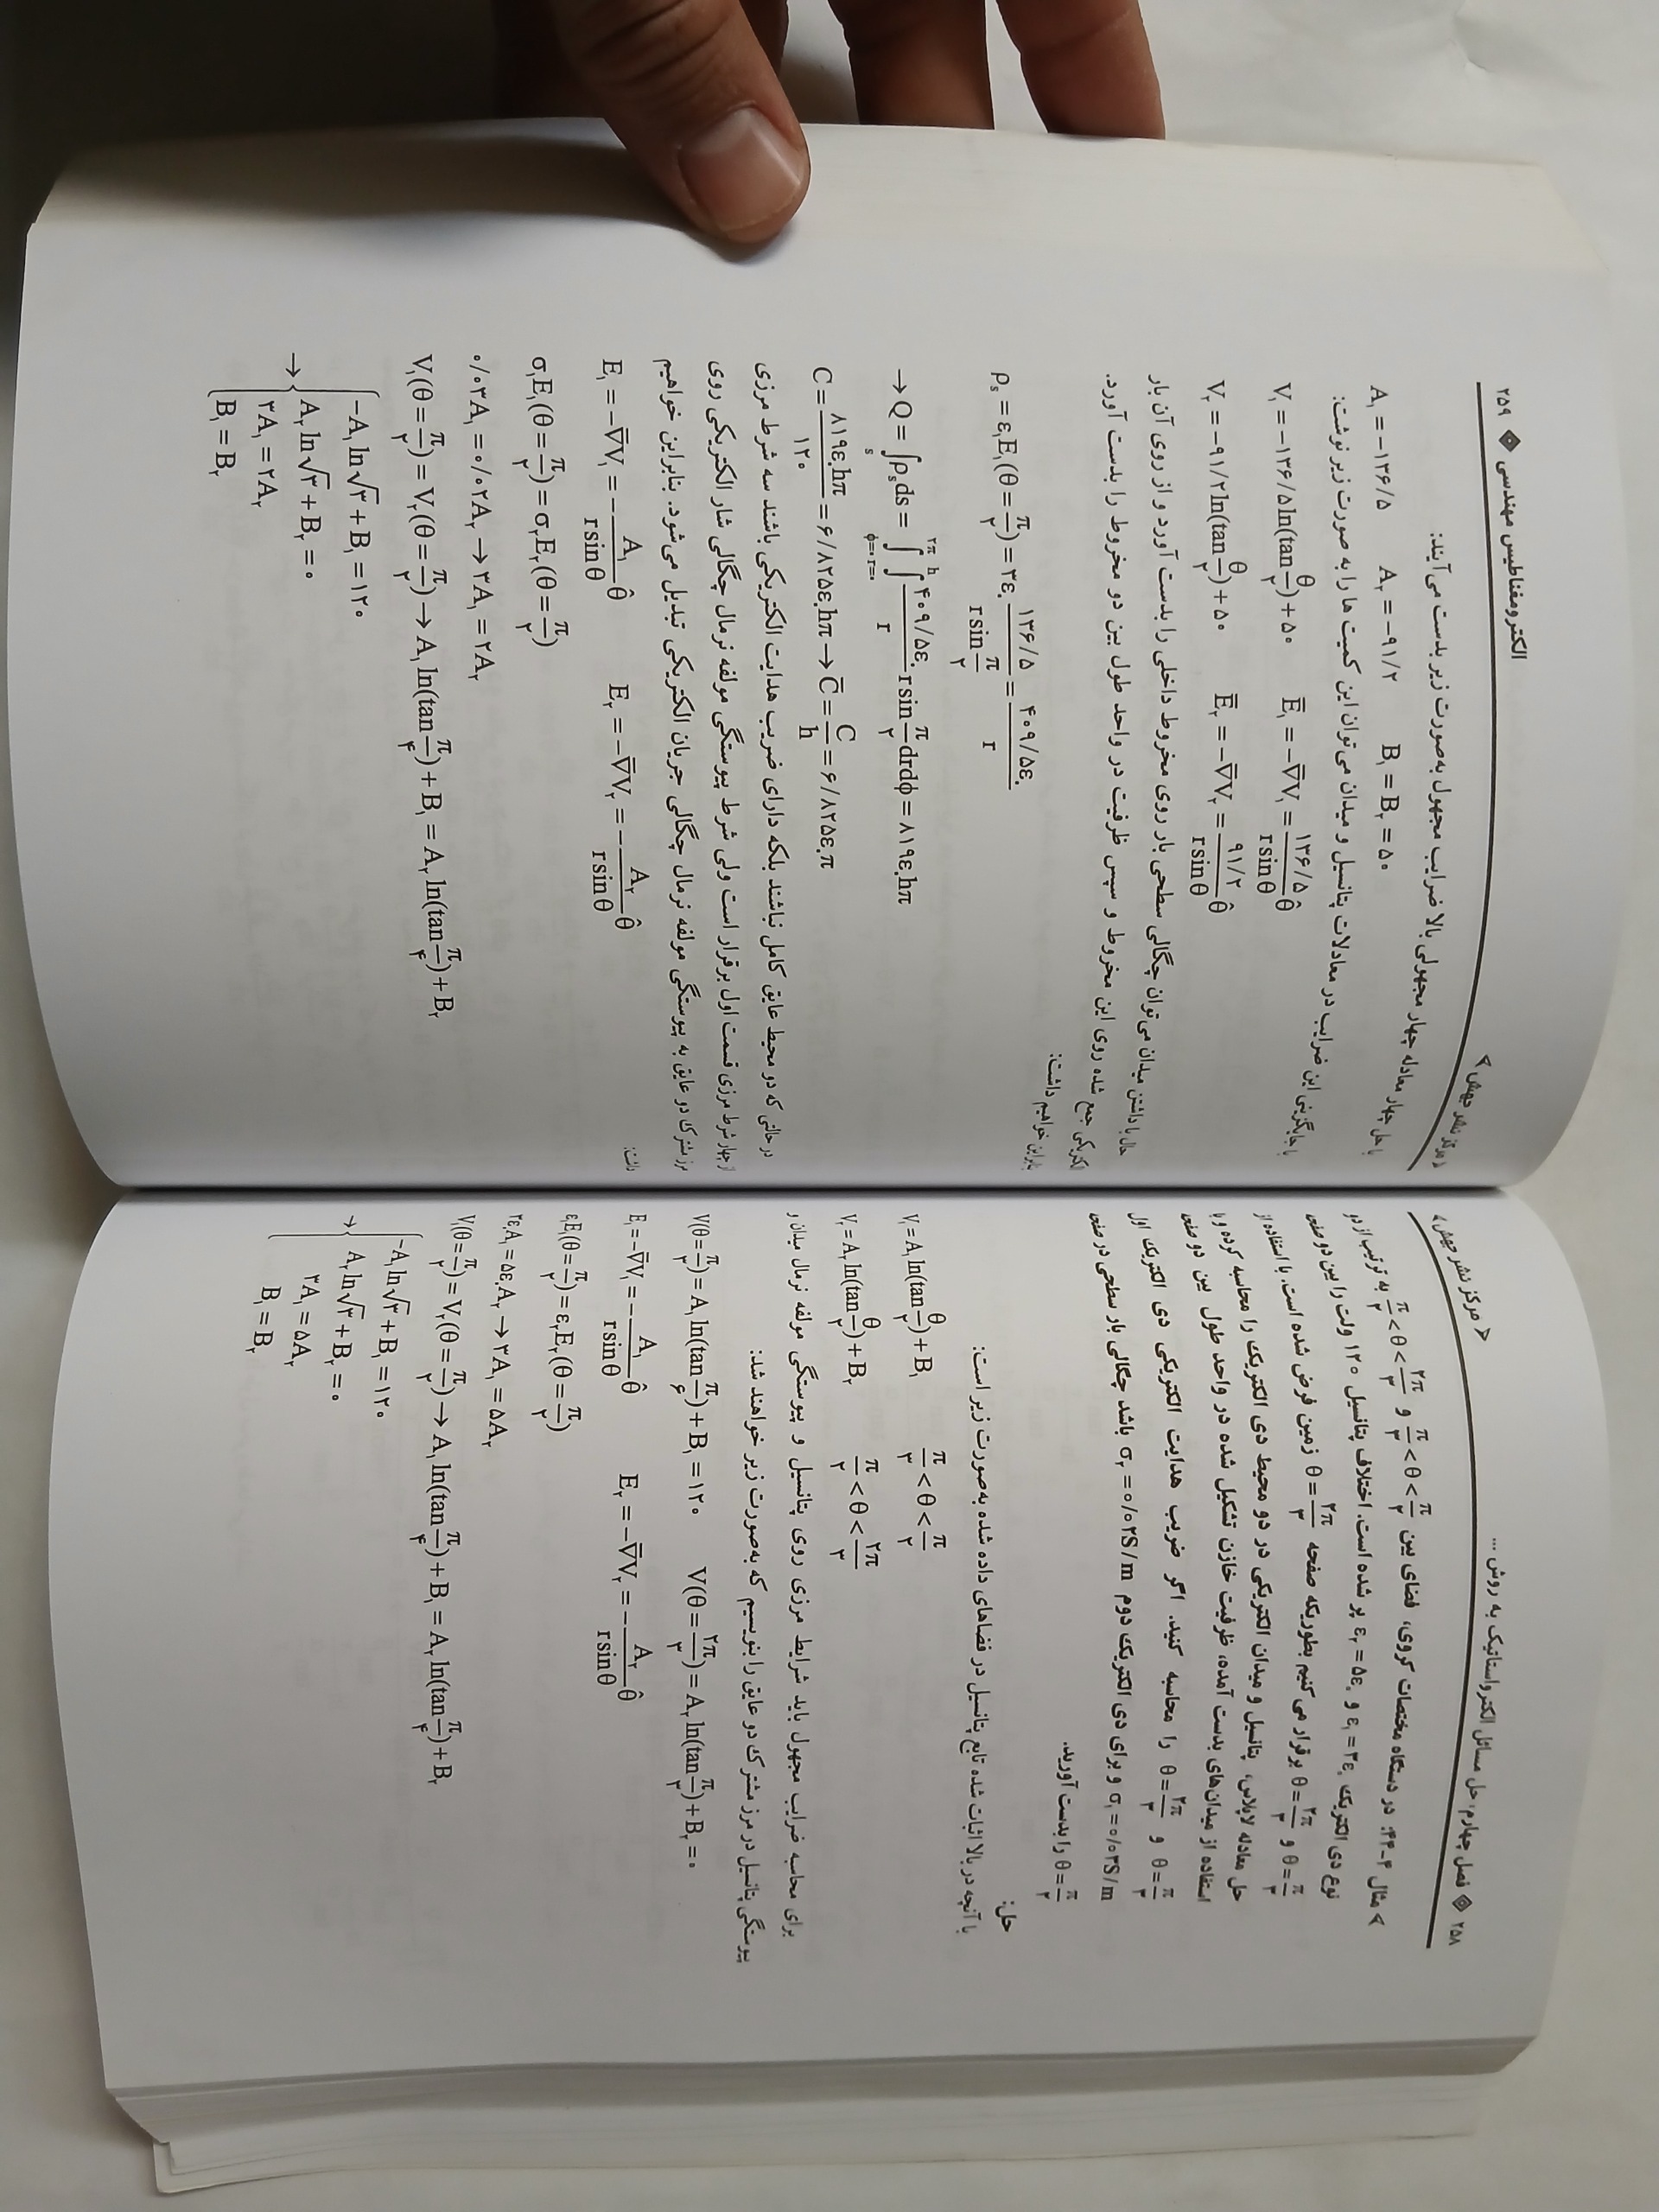 ۲۵۸ ◈ فصل چهارم؛ حل مسائل الکترواستاتیک به روش ...
< مرکز نشر جهش >
> مثال ۴-۴۴: در دستگاه مختصات کروی، فضای بین π/۳ < θ < π/۲ و π/۲ < θ < ۲π/۳ به ترتیب از دو
نوع دی الکتریک ε₁ = ۳ε₀ و ε₂ = ۵ε₀ پر شده است. اختلاف پتانسیل ۱۲۰ ولت را بین دو صفحه
θ = π/۳ و θ = ۲π/۳ برقرار می کنیم بطوریکه صفحه θ = ۲π/۳ زمین فرض شده است. با استفاده از
حل معادله لاپلاس، پتانسیل و میدان الکتریکی در دو محیط دی الکتریک را محاسبه کرده و با
استفاده از میدان‌های بدست آمده، ظرفیت خازن تشکیل شده در واحد طول بین دو صفحه
θ = π/۳ و θ = ۲π/۳ را محاسبه کنید. اگر ضریب هدایت الکتریکی دی الکتریک اول
σ₁ = ۰/۰۳S/m و برای دی الکتریک دوم σ₂ = ۰/۰۲S/m باشد چگالی بار سطحی در صفحه
θ = π/۲ را بدست آورید.
حل:
با آنچه در بالا اثبات شده تابع پتانسیل در فضاهای داده شده به‌صورت زیر است:
V₁ = A₁ ln(tan θ/۲) + B₁   π/۳ < θ < π/۲
V₂ = A₂ ln(tan θ/۲) + B₂   π/۲ < θ < ۲π/۳
برای محاسبه ضرایب مجهول باید شرایط مرزی روی پتانسیل و پیوستگی مولفه نرمال میدان و
پیوستگی پتانسیل در مرز مشترک دو عایق را بنویسیم که به‌صورت زیر خواهند شد:
V(θ = π/۳) = A₁ ln(tan π/۶) + B₁ = ۱۲۰   V(θ = ۲π/۳) = A₂ ln(tan π/۳) + B₂ = ۰
E₁ = −∇̄V₁ = −A₁/(r sin θ) θ̂   E₂ = −∇̄V₂ = −A₂/(r sin θ) θ̂
ε₁E₁(θ = π/۲) = ε₂E₂(θ = π/۲)
۳ε₀A₁ = ۵ε₀A₂ → ۳A₁ = ۵A₂
V₁(θ = π/۲) = V₂(θ = π/۲) → A₁ ln(tan π/۴) + B₁ = A₂ ln(tan π/۴) + B₂
→ { −A₁ ln√۳ + B₁ = ۱۲۰
A₂ ln√۳ + B₂ = ۰
۳A₁ = ۵A₂
B₁ = B₂
الکترومغناطیس مهندسی ◈ ۲۵۹
< مرکز نشر جهش >
با حل چهار معادله چهار مجهولی بالا ضرایب مجهول به‌صورت زیر بدست می آیند:
A₁ = −۱۳۶/۵   A₂ = −۹۱/۲   B₁ = B₂ = ۵۰
با جایگزینی این ضرایب در معادلات پتانسیل و میدان می‌توان این کمیت ها را به صورت زیر نوشت:
V₁ = −۱۳۶/۵ ln(tan θ/۲) + ۵۰   E̅₁ = −∇̄V₁ = ۱۳۶/۵/(r sin θ) θ̂
V₂ = −۹۱/۲ ln(tan θ/۲) + ۵۰   E̅₂ = −∇̄V₂ = ۹۱/۲/(r sin θ) θ̂
حال با داشتن میدان می‌توان چگالی سطحی بار روی مخروط داخلی را بدست آورد و از روی آن بار
الکتریکی جمع شده روی این مخروط و سپس ظرفیت در واحد طول بین دو مخروط را بدست آورد.
بنابراین خواهیم داشت:
ρₛ = ε₁E₁(θ = π/۲) = ۳ε₀ ۱۳۶/۵/(r sin π/۲) = ۴۰۹/۵ε₀/r
→ Q = ∫ₛ ρₛds = ∫_{φ=۰}^{۲π} ∫_{r=۰}^{h} ۴۰۹/۵ε₀/r r sin π/۲ drdφ = ۸۱۹ε₀hπ
C = ۸۱۹ε₀hπ/۱۲۰ = ۶/۸۲۵ε₀hπ → C̅ = C/h = ۶/۸۲۵ε₀π
در حالتی که دو محیط عایق کامل نباشند بلکه دارای ضریب هدایت الکتریکی باشند سه شرط مرزی
از چهار شرط مرزی قسمت اول برقرار است ولی شرط پیوستگی مولفه نرمال چگالی شار الکتریکی روی
مرز مشترک دو عایق به پیوستگی مولفه نرمال چگالی جریان الکتریکی تبدیل می‌شود. بنابراین خواهیم
داشت:
E₁ = −∇̄V₁ = −A₁/(r sin θ) θ̂   E₂ = −∇̄V₂ = −A₂/(r sin θ) θ̂
σ₁E₁(θ = π/۲) = σ₂E₂(θ = π/۲)
۰/۰۳A₁ = ۰/۰۲A₂ → ۳A₁ = ۲A₂
V₁(θ = π/۲) = V₂(θ = π/۲) → A₁ ln(tan π/۴) + B₁ = A₂ ln(tan π/۴) + B₂
→ { −A₁ ln√۳ + B₁ = ۱۲۰
A₂ ln√۳ + B₂ = ۰
۳A₁ = ۲A₂
B₁ = B₂